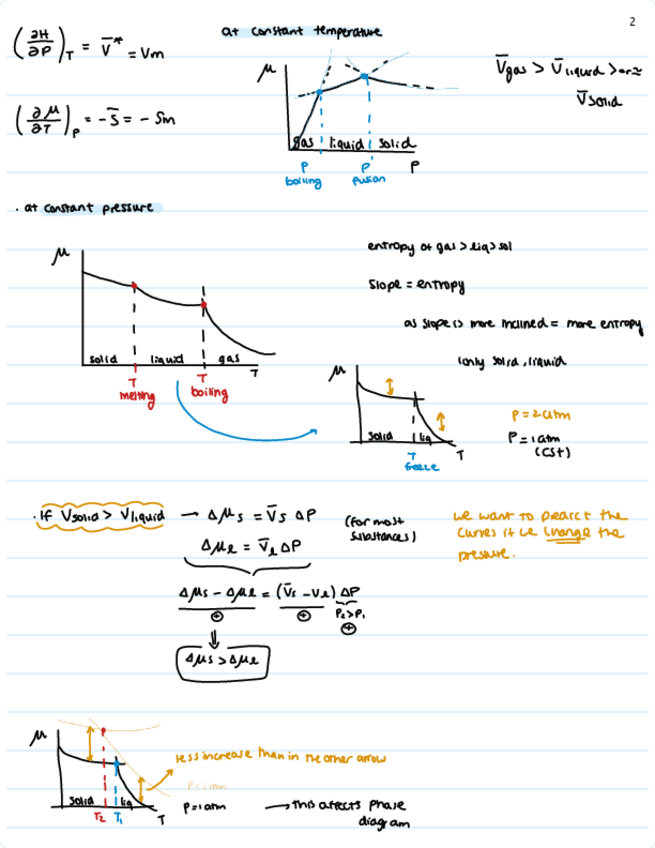 2
(∂H/∂P)_T = V̄* = Vm
at constant temperature
V̄gas > V̄liquid > or ≈
V̄solid
(∂μ/∂T)_P = -S̄ = - Sm
μ
gas | liquid | solid
P boiling
P fusion
P
. at constant pressure
μ
solid
liquid
gas
T
T melting
T boiling
entropy of gas > liq > sol
slope = entropy
as slope is more inclined = more entropy
(only solid, liquid
μ
solid
liq
T
T freeze
P = 2 atm
P = 1 atm
(cst)
. If Vsolid > Vliquid → Δμs = V̄s ΔP
(for most substances)
Δμℓ = V̄ℓ ΔP
we want to pearct the
curves if we change the
pressure.
Δμs - Δμℓ = (V̄s - Vℓ) ΔP
⊕ ⊕ P2>P1
⊕
⇓
Δμs > Δμℓ
μ
less increase than in the other arrow
P = 2 atm
solid
liq
T2 T1
T
P = 1 atm
→ this affects phase
diagram